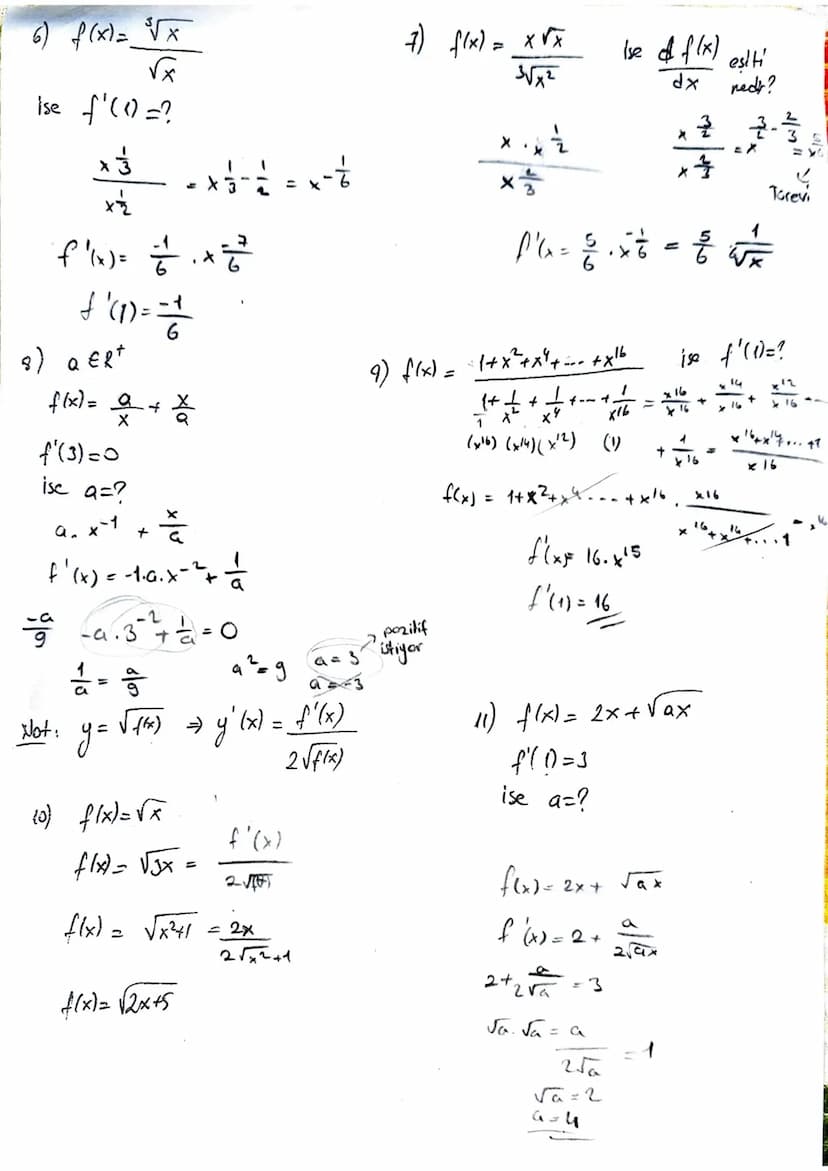 6) f(x) = ∛x / √x
ise f'(1) = ?
x^(1/3) / x^(1/2) = x^(1/3 - 1/2) = x^(-1/6)
f'(x) = -1/6 . x^(-7/6)
f'(1) = -1/6
7) f(x) = x√x / ∛x² ise d f(x) / dx eşiti nedir?
x . x^(1/2) / x^(2/3)
x^(3/2) / x^(2/3) = x^(3/2 - 2/3) = x^(5/6)
Türevi
f'(x = 5/6 . x^(-1/6) = 5/6 1/⁶√x
8) a ∈ R⁺
f(x) = a/x + x/a
f'(3) = 0
ise a = ?
a. x⁻¹ + x/a
f'(x) = -1.a.x⁻² + 1/a
-a/9 -a . 3⁻² + 1/a = 0
1/a = a/9 a² = 9 a = 3 pozitif istiyor
a = -3
9) f(x) = 1+x²+x⁴+ --- +x¹⁶ ise f'(1) = ?
1/1 + 1/x² + 1/x⁴ + --- + 1/x¹⁶ = x¹⁶/x¹⁶ + x¹⁴/x¹⁶ + x¹²/x¹⁶ ---
(x¹⁶) (x¹⁴) (x¹²) (1) + 1/x¹⁶ = x¹⁶+x¹⁴+...+1 / x¹⁶
f(x) = 1+x²+x⁴ ---- + x¹⁶ . x¹⁶ / x¹⁶+x¹⁴+...1 = x¹⁶
f'(x) = 16.x¹⁵
f'(1) = 16
Not: y = √f(x) ⇒ y'(x) = f'(x) / 2√f(x)
10) f(x) = √x
f(x) = √3x = f'(x) / 2√f(x)
f(x) = √x²+1 = 2x / 2√x²+1
f(x) = √2x+5
11) f(x) = 2x + √ax
f'(1) = 3
ise a = ?
f(x) = 2x + √ax
f'(x) = 2 + a / 2√ax
2 + a / 2√a = 3
√a . √a = a / 2√a = 1
√a = 2
a = 4